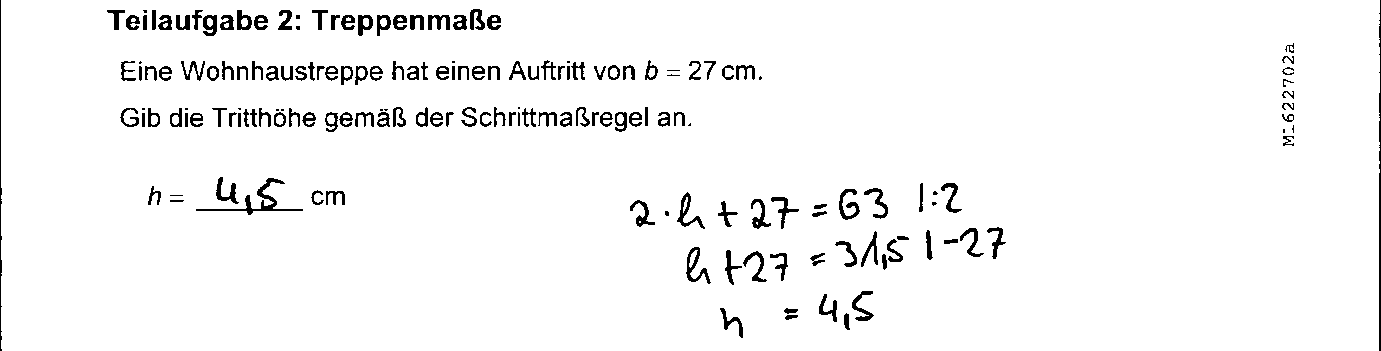 Teilaufgabe 2: Treppenmaße
Eine Wohnhaustreppe hat einen Auftritt von b = 27 cm.
Gib die Tritthöhe gemäß der Schrittmaßregel an.
h = 4,5 cm
2·h + 27 = 63 |:2
h +27 = 31,5 |-27
h = 4,5
M1622702a